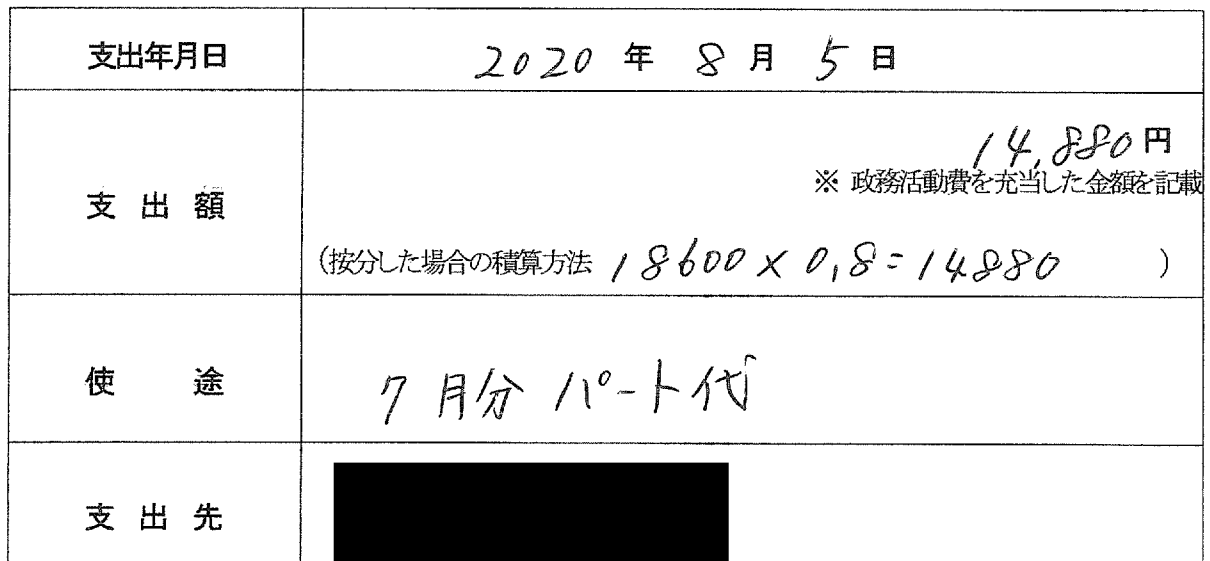 支出年月日
2020 年 8 月 5 日
支出額
14,880円
※ 政務活動費を充当した金額を記載
(按分した場合の積算方法 18600 × 0,8 = 14880 )
使途
7月分 パート代
支出先